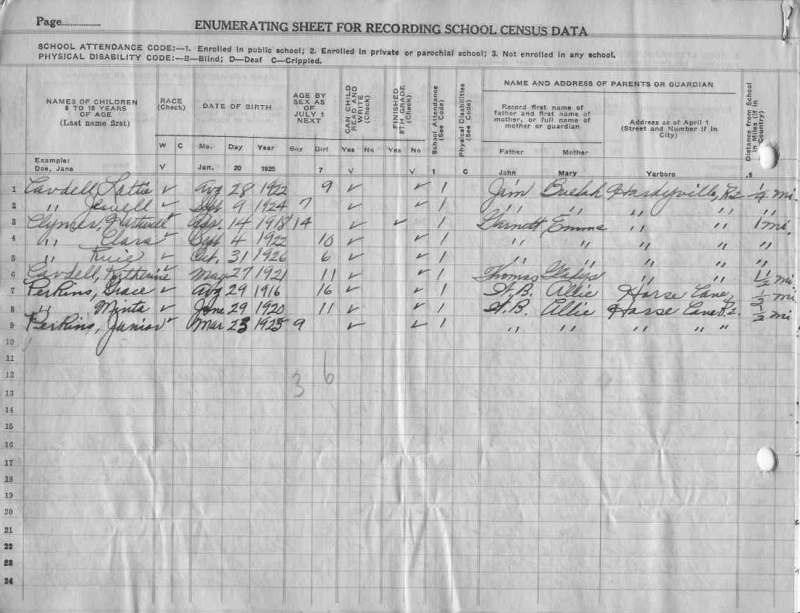 Page
ENUMERATING SHEET FOR RECORDING SCHOOL CENSUS DATA
SCHOOL ATTENDANCE CODE:—1. Enrolled in public school; 2. Enrolled in private or parochial school; 3. Not enrolled in any school.
PHYSICAL DISABILITY CODE:—B—Blind; D—Deaf C—Crippled.
NAMES OF CHILDREN 6 TO 18 YEARS OF AGE (Last name first)
RACE (Check)
W C
DATE OF BIRTH
Mo. Day Year
AGE BY SEX AS OF JULY 1 NEXT
Boy Girl
CAN CHILD READ AND WRITE (Check)
Yes No
FINISHED 8TH GRADE (Check)
Yes No
School Attendance (See Code)
Physical Disabilities (See Code)
NAME AND ADDRESS OF PARENTS OR GUARDIAN
Record first name of father and first name of mother, or full name of mother or guardian
Father Mother
Address as of April 1 (Street and Number if in City)
Distance from School in Miles (if in Country)
Example: Doe, Jane V Jan. 20 1925 7 V V 1 C John Mary Yarboro .5
1 Cavdell, Lottie ✓ Aug 28 1922 9 ✓ ✓ 1 Jim Buelah Hardyville, 1/4 mi.
2 " Jewell ✓ Sept 9 1924 7 ✓ ✓ 1 " " " " "
3 Clymer, ✓ 14 1918 14 ✓ ✓ 1 Emma " " 1 mi.
4 " Clara ✓ Sept 4 1922 10 ✓ ✓ 1 " " " " "
5 " ✓ Oct. 31 1926 6 ✓ ✓ 1 " " " " "
6 Cavdell, Katherine May 27 1921 11 ✓ ✓ 1 Thomas Gladys " " 1 1/2 mi
7 Perkins, Grace ✓ Aug 29 1916 16 ✓ ✓ 1 Allie Horse Cave, 1/2 mi
8 " Minta ✓ June 29 1920 11 ✓ ✓ 1 Allie Horse Cave 1/2 mi
9 Perkins, Junior ✓ Mar 23 1923 9 ✓ ✓ 1 " " " " "
10
11
12 3 6
13
14
15
16
17
18
19
20
21
22
23
24